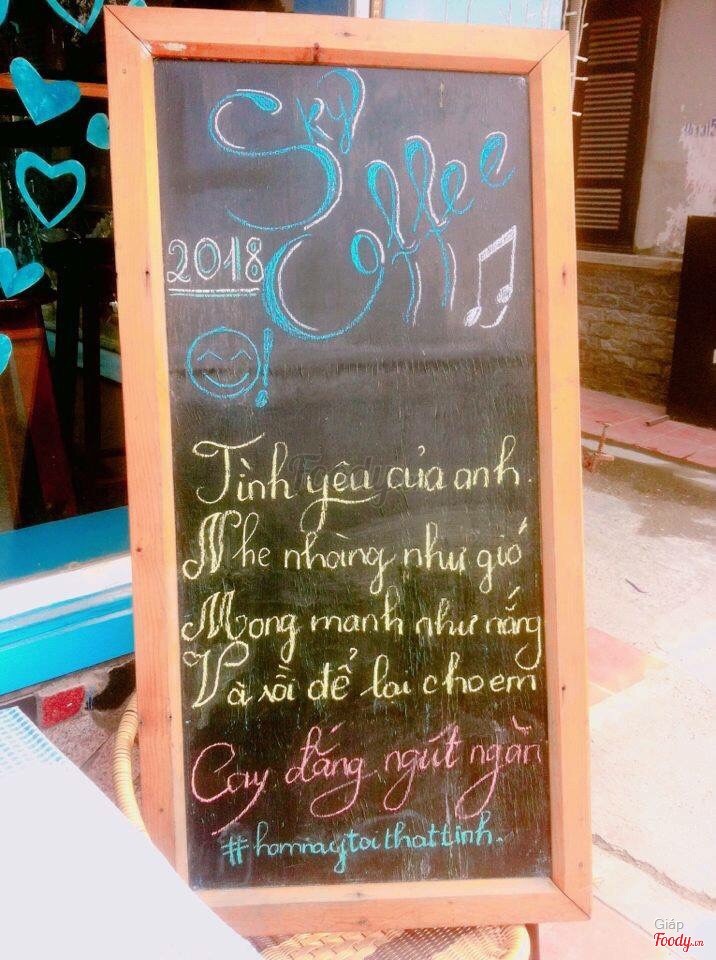 Sky
Coffee
2018
!
Tình yêu của anh.
Nhẹ nhàng như gió
Mong manh như nắng
Và rồi để lại cho em
Cay đắng ngút ngàn
#homnaytoithattinh.
Foody
Giáp
Foody.vn